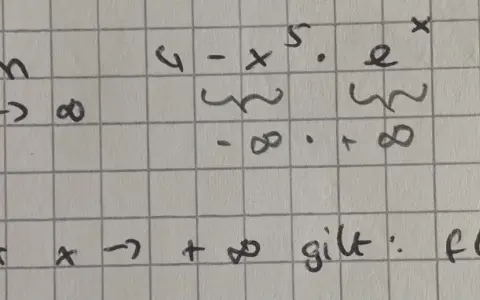 n 4 - x⁵ · eˣ
→ ∞
- ∞ · + ∞
x → + ∞ gilt: f(